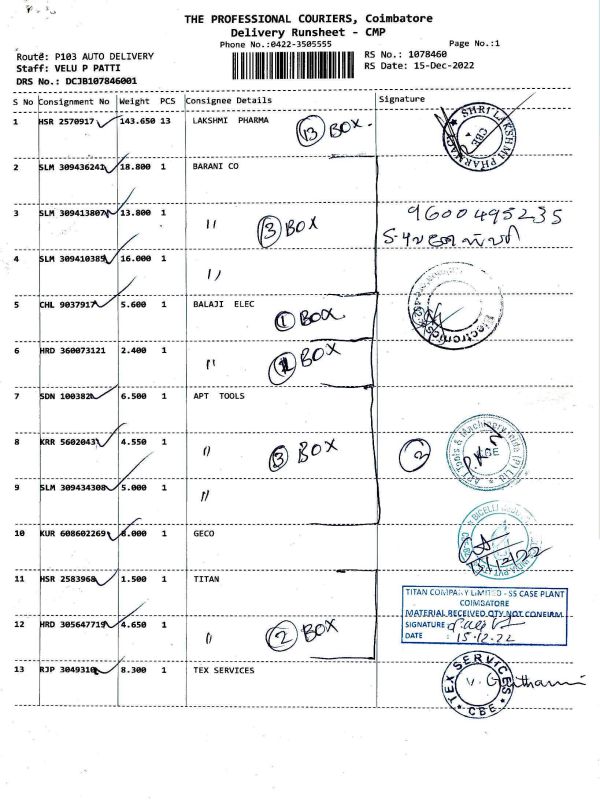 THE PROFESSIONAL COURIERS, Coimbatore
Delivery Runsheet - CMP
Phone No.:0422-3505555 Page No.:1
Route: P103 AUTO DELIVERY RS No.: 1078460
Staff: VELU P PATTI RS Date: 15-Dec-2022
DRS No.: DCJB107846001
S No Consignment No Weight PCS Consignee Details Signature
1 HSR 2570917 143.650 13 LAKSHMI PHARMA 13 BOX
SHRI LAKSHMI PHARMACY CBE
2 SLM 309436241 18.800 1 BARANI CO
3 SLM 309413807 13.800 1 " 3 BOX 9600495235
4 SLM 309410385 16.000 1 "
5 CHL 9037917 5.600 1 BALAJI ELEC 1 BOX
Electronics
6 HRD 360073121 2.400 1 " 1 BOX
7 SDN 100382 6.500 1 APT TOOLS
8 KRR 5602043 4.550 1 " 3 BOX 3
APT Tools & Machinery India (P) Ltd CBE
9 SLM 309434308 5.000 1 "
10 KUR 608602269 8.000 1 GECO
15/12/22
11 HSR 2583968 1.500 1 TITAN
TITAN COMPANY LIMITED - SS CASE PLANT
COIMBATORE
MATERIAL RECEIVED QTY NOT CONFIRM
12 HRD 305647719 4.650 1 " 2 BOX
SIGNATURE
DATE : 15.12.22
13 RJP 3049310 8.300 1 TEX SERVICES
TEX SERVICES CBE